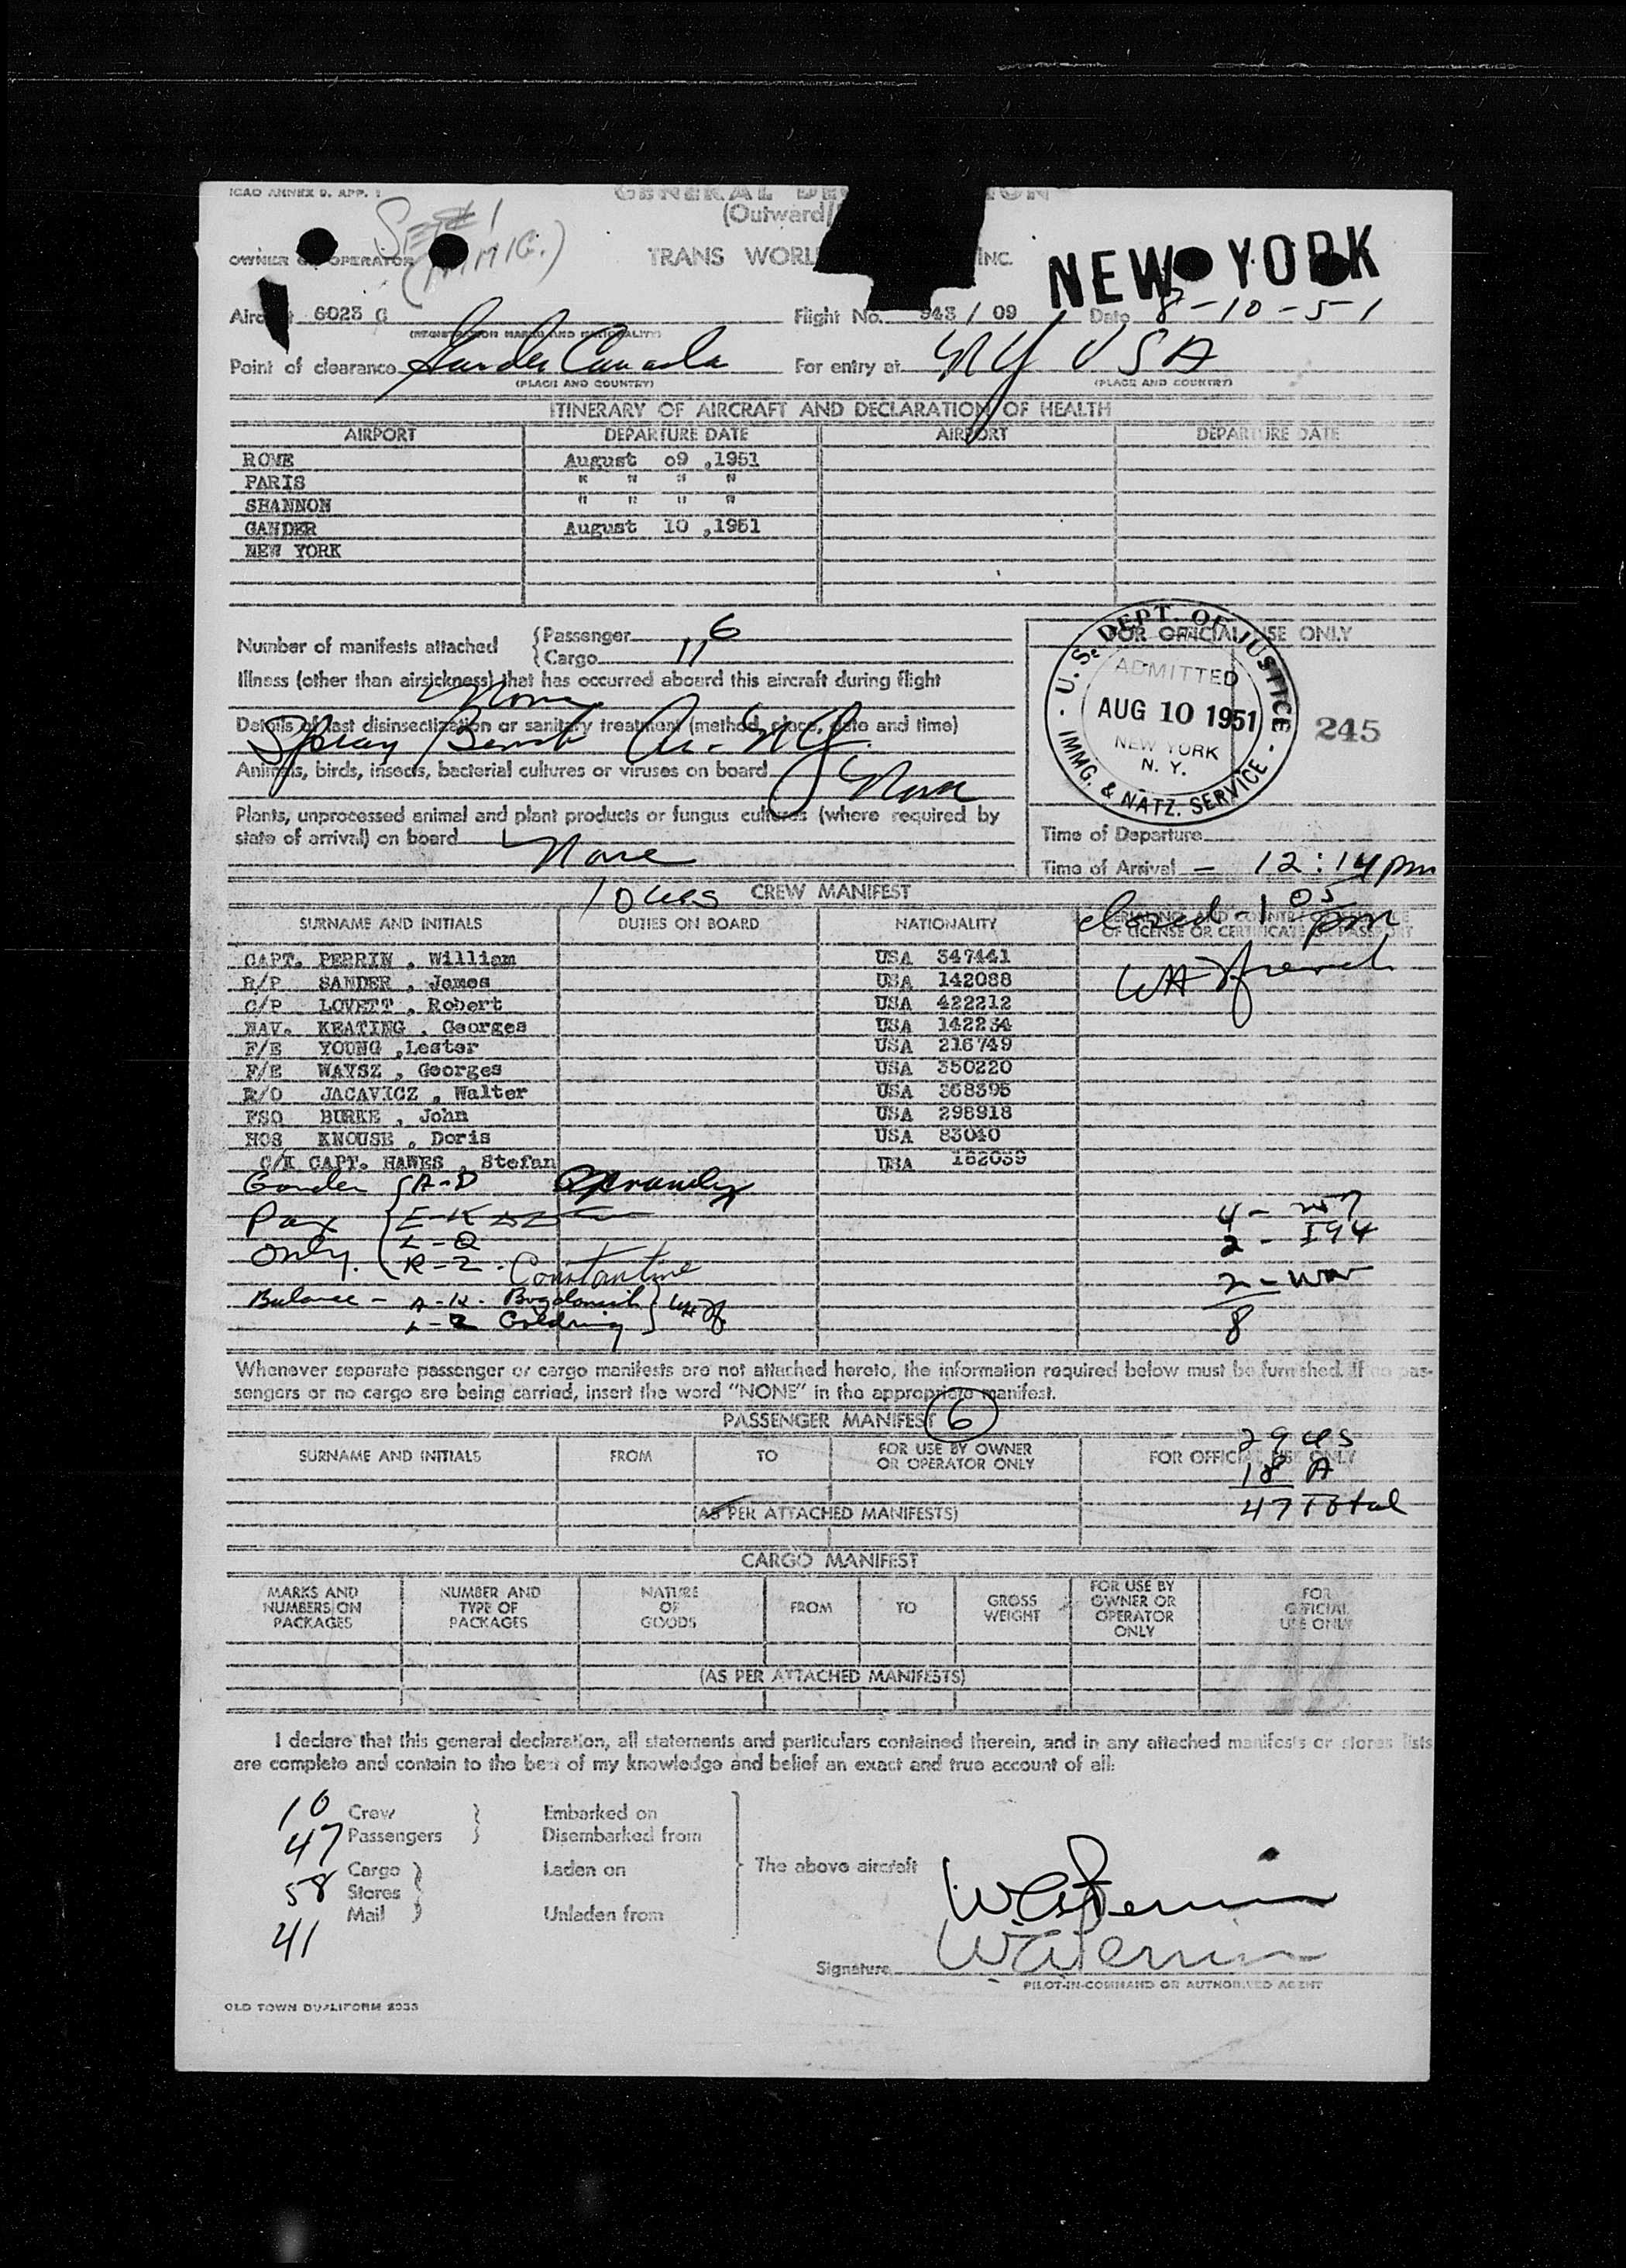 ICAO ANNEX 9. APP. 1
GENERAL
(Outward/
SET #1
(IMMIG.)
OWNER OR OPERATOR
TRANS WORL INC.
NEW YORK
Aircraft 6023 C Flight No. 943 / 09 Date 8-10-51
(REGISTRATION MARKS AND NATIONALITY)
Point of clearance Gander Canada For entry at NY USA
(PLACE AND COUNTRY) (PLACE AND COUNTRY)
ITINERARY OF AIRCRAFT AND DECLARATION OF HEALTH
AIRPORT DEPARTURE DATE AIRPORT DEPARTURE DATE
ROME August 09 ,1951
PARIS " " " "
SHANNON " " " "
GANDER August 10 ,1951
NEW YORK
Number of manifests attached { Passenger 6
{ Cargo 11
FOR OFFICIAL USE ONLY
Illness (other than airsickness) that has occurred aboard this aircraft during flight
None
Details of last disinsectization or sanitary treatment (method, place, date and time)
Spray Bomb
Animals, birds, insects, bacterial cultures or viruses on board
None
Plants, unprocessed animal and plant products or fungus cultures (where required by
state of arrival) on board None
U.S. DEPT. OF JUSTICE
ADMITTED
AUG 10 1951
NEW YORK
N. Y.
IMMG. & NATZ. SERVICE
245
Time of Departure
Time of Arrival - 12:14 pm
10 CREW MANIFEST
closed - 1 05 pm
SURNAME AND INITIALS DUTIES ON BOARD NATIONALITY SERIAL NO. AND COUNTRY OF ISSUE
OF LICENSE OR CERTIFICATE OR PASSPORT
CAPT. PERRIN , William USA 347441
R/P SANDER , James USA 142088
C/P LOVETT , Robert USA 422212
NAV. KEATING , Georges USA 142234
F/E YOUNG ,Lester USA 216749
F/E WAYSZ , Georges USA 350220
R/O JACAVICZ , Walter USA 368395
FSO BURKE , John USA 298918
HOS KNOUSE , Doris USA 83040
C/K CAPT. HAWES , Stefan USA 162039
Gander { A-D
Pax { E-K
Only. { L-Q
R-Z - Constantine
Balance - A-K - Bogdanich
L-Z Goldring
2 - I94
8
Whenever separate passenger or cargo manifests are not attached hereto, the information required below must be furnished. If no pas-
sengers or no cargo are being carried, insert the word "NONE" in the appropriate manifest.
PASSENGER MANIFEST 6
SURNAME AND INITIALS FROM TO FOR USE BY OWNER
OR OPERATOR ONLY FOR OFFICIAL USE ONLY
29
18 A
47 Total
(AS PER ATTACHED MANIFESTS)
CARGO MANIFEST
MARKS AND
NUMBERS ON
PACKAGES
NUMBER AND
TYPE OF
PACKAGES
NATURE
OF
GOODS
FROM
TO
GROSS
WEIGHT
FOR USE BY
OWNER OR
OPERATOR
ONLY
FOR
OFFICIAL
USE ONLY
(AS PER ATTACHED MANIFESTS)
I declare that this general declaration, all statements and particulars contained therein, and in any attached manifests or stores lists
are complete and contain to the best of my knowledge and belief an exact and true account of all:
10 Crew } Embarked on
47 Passengers } Disembarked from
Cargo } Laden on
58 Stores }
Mail } Unladen from
41
The above aircraft
Signature
W Perrin
PILOT-IN-COMMAND OR AUTHORIZED AGENT
OLD TOWN DUALIFORM 2033